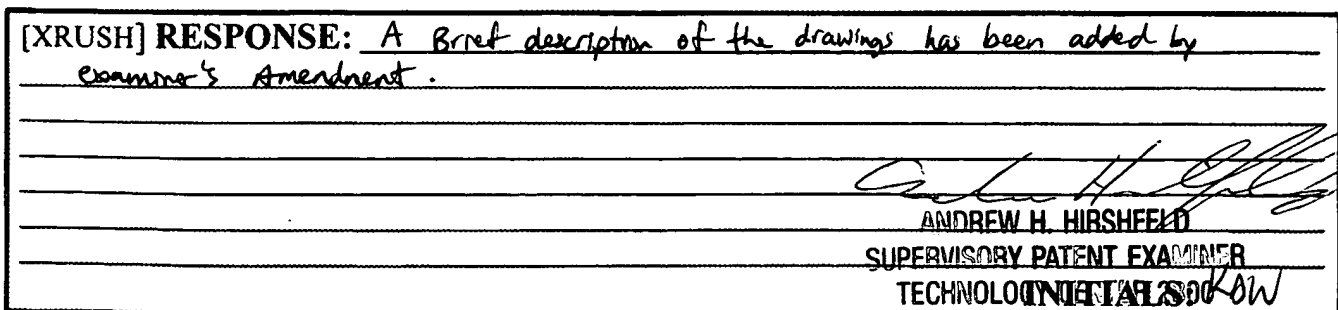 [XRUSH] RESPONSE: A Brief description of the drawings has been added by
examiner's Amendment.
ANDREW H. HIRSHFELD
SUPERVISORY PATENT EXAMINER
INITIALS: KDW